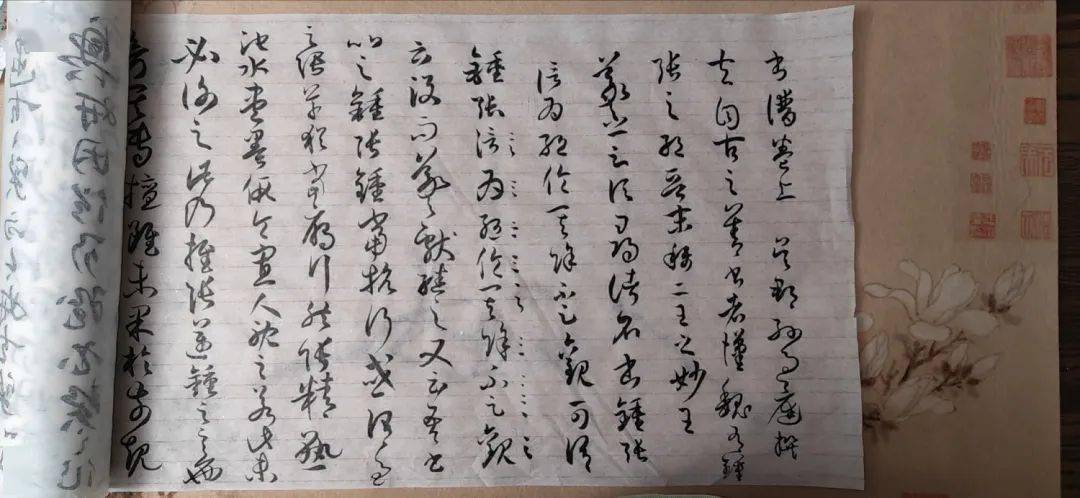 書譜卷上 吳郡孫過庭撰
夫自古之善書者漢魏有鍾
張之絕晉末稱二王之妙王
羲之云頃尋諸名書鍾張
信為絕倫其餘不足觀可謂
鍾張信為絕倫其餘不足觀
云沒而羲獻繼之又云吾書
比之鍾張鍾當抗行或謂過
之張草猶當雁行然張精熟
池水盡墨假令寡人耽之若此未
必謝之此乃推張邁鍾之意也
考其專擅雖未果於前規